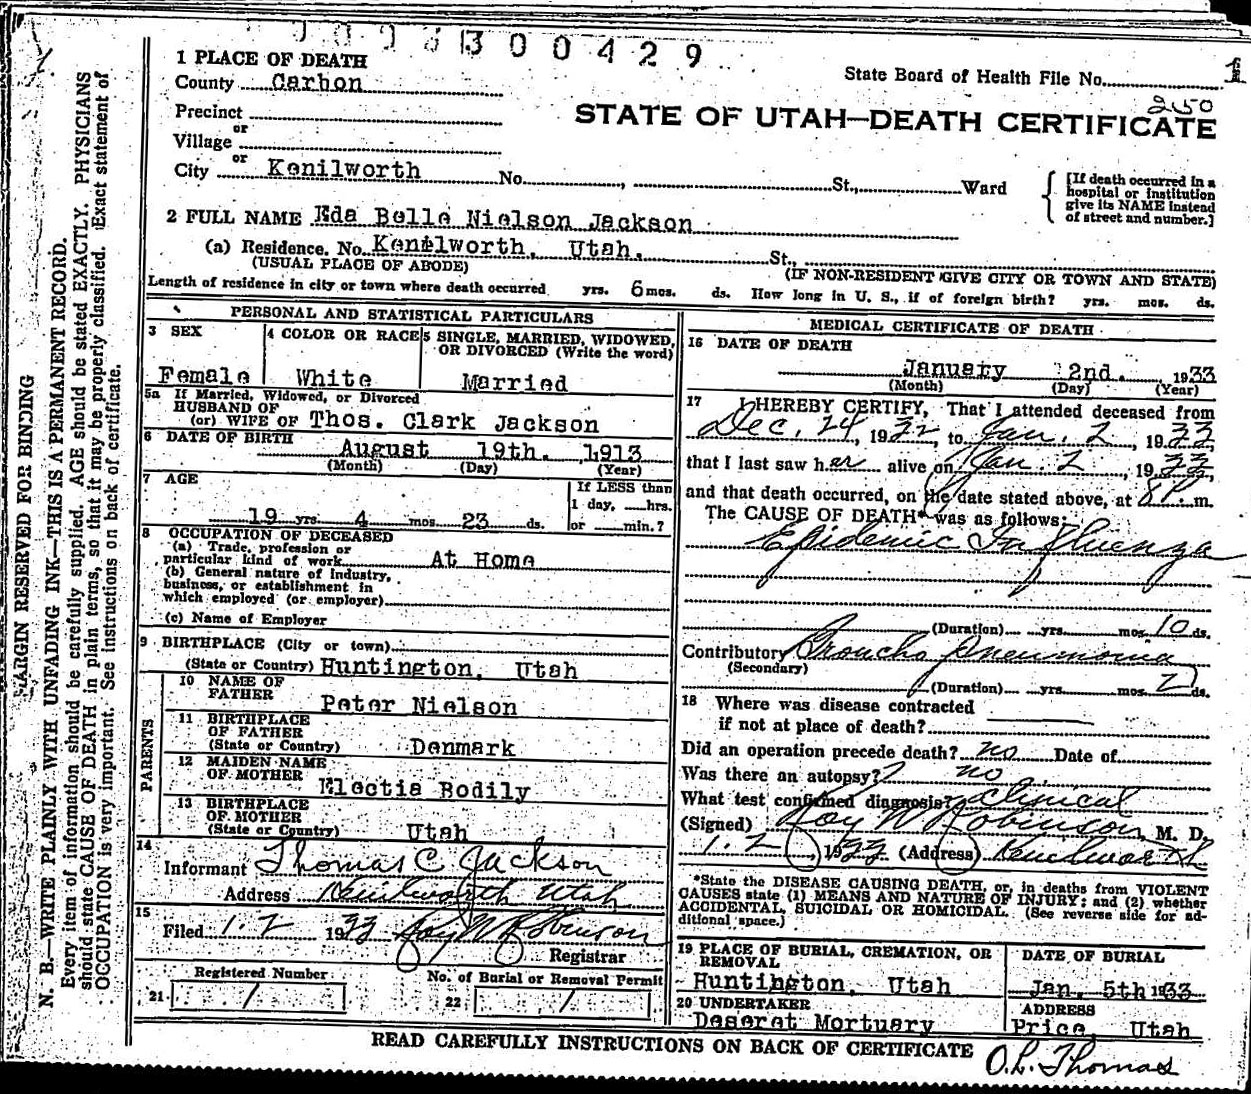 300429
1 PLACE OF DEATH
State Board of Health File No. 1
County Carbon
2150
Precinct
STATE OF UTAH—DEATH CERTIFICATE
or
Village
or
City Kenilworth No. , St., Ward
[If death occurred in a hospital or institution give its NAME instead of street and number.]
2 FULL NAME Eda Belle Nielson Jackson
(a) Residence. No. Kenilworth, Utah. St.,
(USUAL PLACE OF ABODE) (IF NON-RESIDENT GIVE CITY OR TOWN AND STATE)
Length of residence in city or town where death occurred yrs. 6 mos. ds. How long in U. S., if of foreign birth? yrs. mos. ds.
PERSONAL AND STATISTICAL PARTICULARS
3 SEX
Female
4 COLOR OR RACE
White
5 SINGLE, MARRIED, WIDOWED, OR DIVORCED (Write the word)
Married
5a If Married, Widowed, or Divorced
HUSBAND OF
(or) WIFE OF Thos. Clark Jackson
6 DATE OF BIRTH
August 19th. 1913
(Month) (Day) (Year)
7 AGE
19 yrs. 4 mos. 23 ds.
If LESS than
1 day, hrs.
or min.?
8 OCCUPATION OF DECEASED
(a) Trade, profession or
particular kind of work At Home
(b) General nature of Industry,
business, or establishment in
which employed (or employer)
(c) Name of Employer
9 BIRTHPLACE (City or town)
(State or Country) Huntington, Utah
PARENTS
10 NAME OF
FATHER
Peter Nielson
11 BIRTHPLACE
OF FATHER
(State or Country) Denmark
12 MAIDEN NAME
OF MOTHER
Electia Bodily
13 BIRTHPLACE
OF MOTHER
(State or Country) Utah
14
Informant Thomas C. Jackson
Address Kenilworth Utah
15
Filed 1.2 1933 Roy W Robinson
Registrar
Registered Number
21 1
No. of Burial or Removal Permit
22 1
MEDICAL CERTIFICATE OF DEATH
16 DATE OF DEATH
January 2nd. 1933
(Month) (Day) (Year)
17 I HEREBY CERTIFY, That I attended deceased from
Dec. 24, 1932, to Jan. 2, 1933,
that I last saw her alive on Jan. 2, 1933,
and that death occurred, on the date stated above, at 8 P. m.
The CAUSE OF DEATH* was as follows:
Epidemic Influenza
(Duration) yrs. mos. 10 ds.
Contributory Broncho Pneumonia
(Secondary)
(Duration) yrs. mos. 7 ds.
18 Where was disease contracted
if not at place of death?
Did an operation precede death? no Date of
Was there an autopsy? no
What test confirmed diagnosis? Clinical
(Signed) Roy W Robinson, M. D.
1.2, 1933 (Address) Kenilworth
*State the DISEASE CAUSING DEATH, or, in deaths from VIOLENT
CAUSES state (1) MEANS AND NATURE OF INJURY; and (2) whether
ACCIDENTAL, SUICIDAL OR HOMICIDAL. (See reverse side for ad-
ditional space.)
19 PLACE OF BURIAL, CREMATION, OR
REMOVAL
Huntington, Utah
DATE OF BURIAL
Jan. 5th 1933
20 UNDERTAKER
Deseret Mortuary
ADDRESS
Price, Utah
READ CAREFULLY INSTRUCTIONS ON BACK OF CERTIFICATE
O. L. Thomas
MARGIN RESERVED FOR BINDING
N. B.—WRITE PLAINLY WITH UNFADING INK—THIS IS A PERMANENT RECORD.
Every item of information should be carefully supplied. AGE should be stated EXACTLY. PHYSICIANS
should state CAUSE OF DEATH in plain terms, so that it may be properly classified. Exact statement of
OCCUPATION is very important. See instructions on back of certificate.